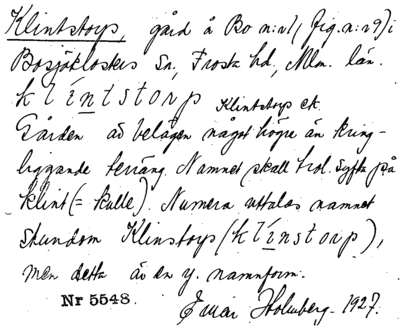 Klintstorp, gård å Bo n:r 1, (fig. a: 29) i
Bosjökloster sn, Frosta hd, Mlm. län.
klíntstorp Klintstorp ek.
Gården är belägen något högre än kring-
liggande terräng. Namnet skall trol. syfta på
klint (= kulle). Numera uttalas namnet
stundom Klinstorp (klínstorp),
men detta är en y. namnform.
Nr 5548. Einar Holmberg. 1927.